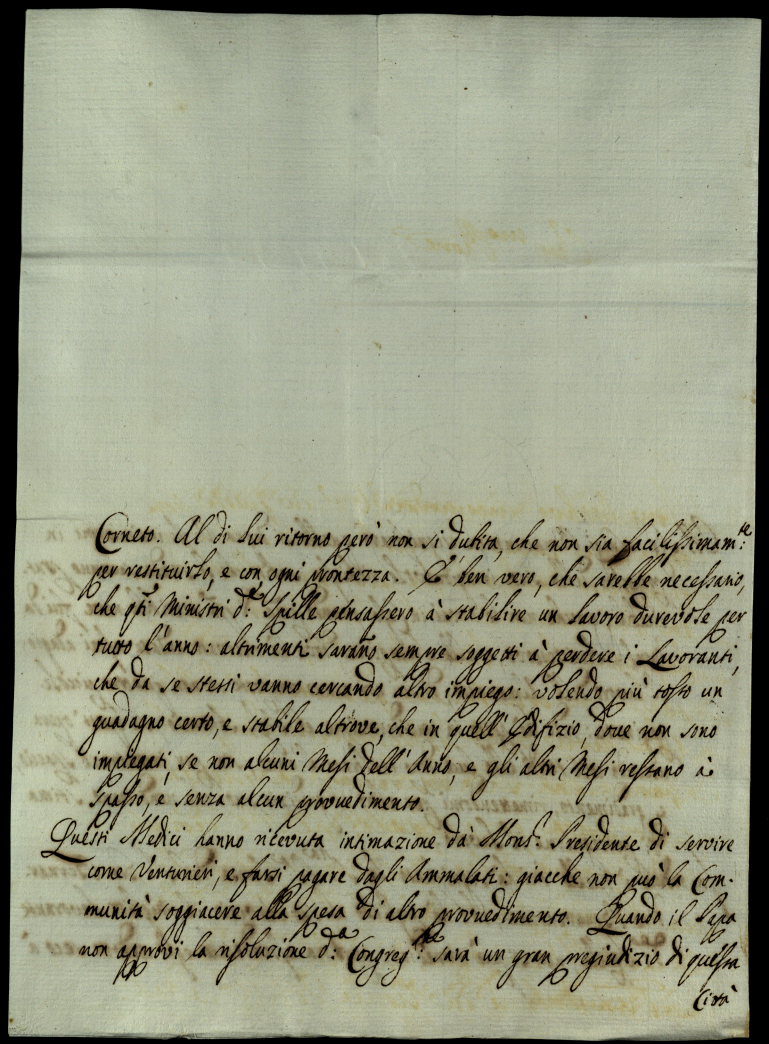 Corneto. Al di Lui ritorno però non si dubita, che non sia facilissimam:te
per restituirlo, e con ogni prontezza. E' ben vero, che sarebbe necessario,
che q.ti Ministri d:e Spille pensassero à stabilire un Lavoro durevole per
tutto l'anno: altrimenti saranno sempre soggetti à perdere i Lavoranti,
che da se stessi vanno cercando altro impiego: volendo più tosto un
guadagno certo, e stabile altrove, che in quell'Edifizio, dove non sono
impiegati, se non alcuni Mesi dell'Anno, e gli altri Mesi restano à
spasso, e senza alcun provuedimento.
Questi Medici hanno ricevuta intimazione dà Mons.r Presidente di servire
come Venturieri, e farsi pagare dagli Ammalati: giacche non può la Com-
munità soggiacere alla spesa di altro provuedimento. Quando il Papa
non approvi la risoluzione d:a Congreg:ne sarà un gran pregiudizio di questa
Città